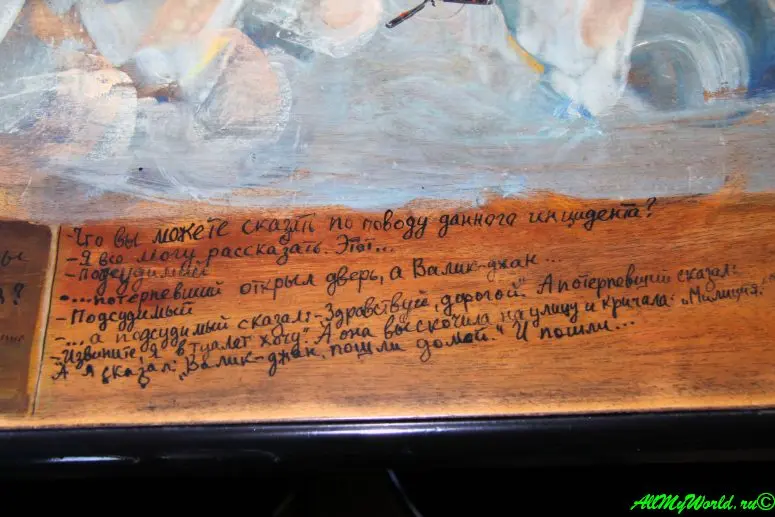 Что вы можете сказать по поводу данного инцидента?
- Я всё могу рассказать. Этот...
- Подсудимый
- ...потерпевший открыл дверь, а Валик-джан...
- Подсудимый
- ... а подсудимый сказал: - Здравствуй, дорогой." А потерпевший сказал:
- Извините, я в туалет хочу". А она выскочила на улицу и кричала: „Милиция."
А я сказал: „Валик-джан, пошли домой." И пошли...
ы
?
AllMyWorld.ru©